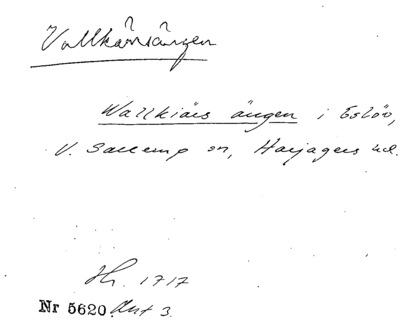 Vallkärsängen
Wallkiärs ängen i Eslöv,
V. Sallerup sn, Harjagers hd.
Hr. 1717
Nr 5620 Ant 3.